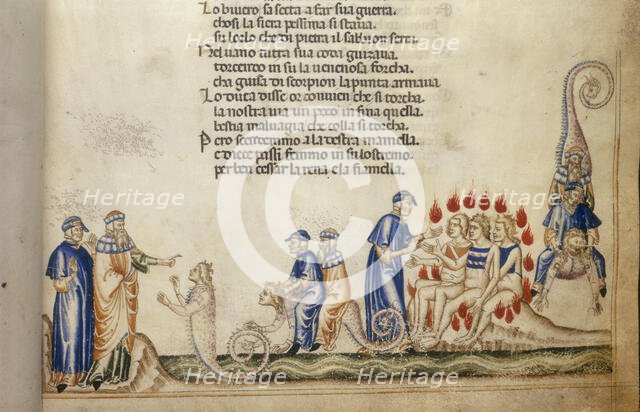 Lo biuero sa secta a far sua guerra.
chosi la fiera pessima si staua.
su lorlo che di pietra il sabbion serra.
Nel uano tutta sua coda guizaua.
torcendo in su la uenenosa forcha.
cha guisa di scorpion la punta armaua.
Lo duca disse or conuien che si torcha.
la nostra uia un poco in fina quella.
bestia maluagia che colla si torcha.
Pero scendemmo a la destra mamella.
e diece passi femmo in su lostremo.
per ben cessar la rena e la fiamella.
Heritage Heritage
Heritage
Heritage Heritage